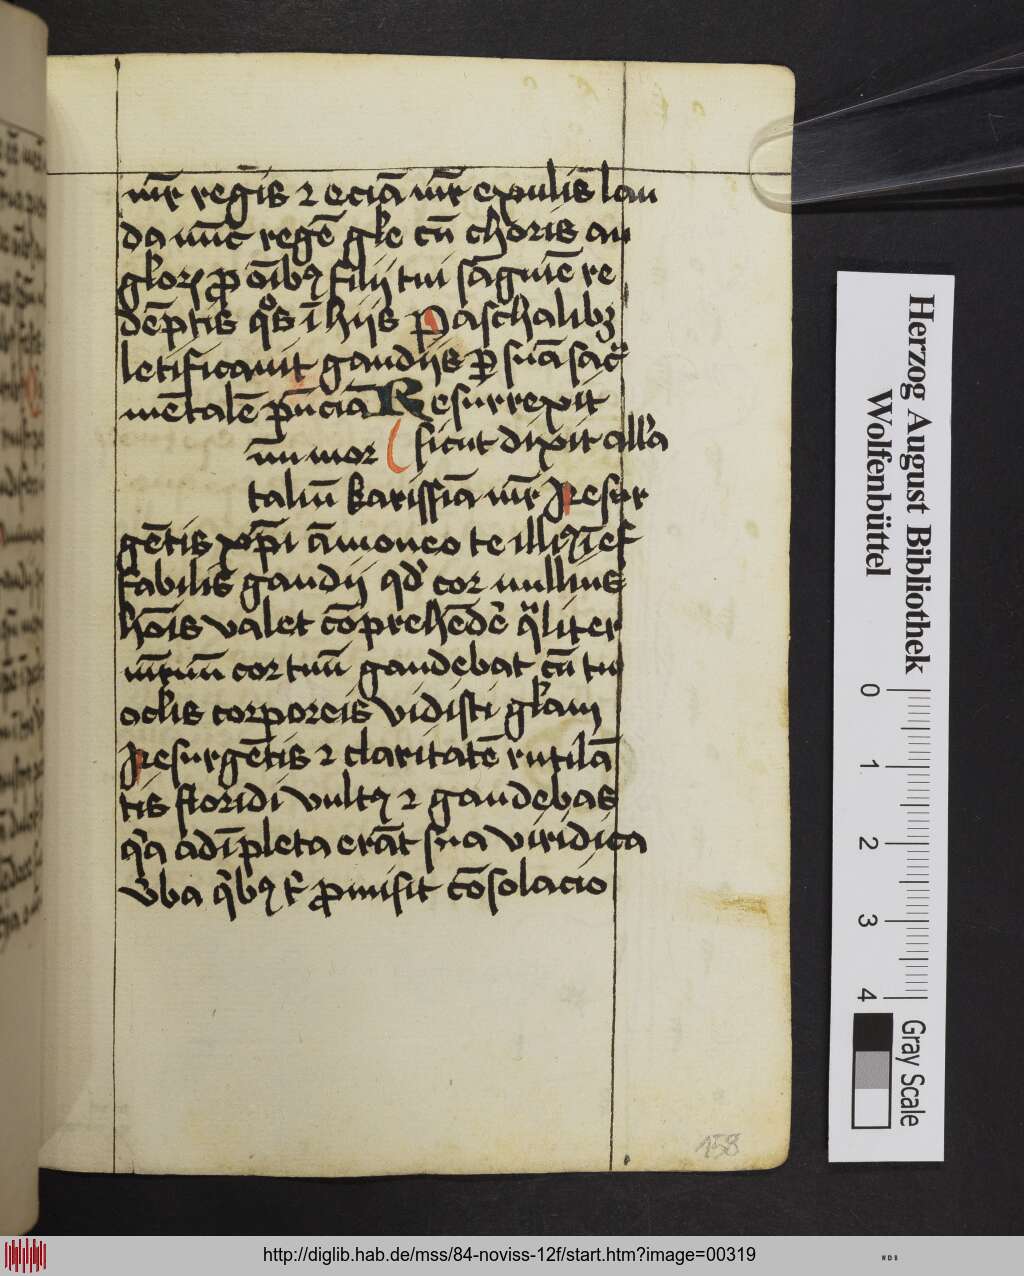 mr̄ regis̄ ⁊ eciā mr̄ exulis̄ lau
da nūc regē gl̄e cū choris an
glor̨ ꝓ oībꝫ filij tui sāguīe re
dēptis q̊s ī hijs Paschalibꝫ
letificauit gaudijs ꝑ suā sac̄
mētalē pn̄ciā Resurrexit
sicut dixit all'a
taliū karissīa mr̄ Resur
gētis xp̄i āmoneo te illiꝰ īef
fabilis gaudij qd̄ cor nullius
hoīs valet cōprehēdē q̄liter
cor tuū gaudebat cū tuis
oclis corporeis vidisti gl̄am
Resurgētis ⁊ claritatē rutilā
tis floridi vultꝰ ⁊ gaudebas
q̄a adīpleta erāt sua viridica
v̄ba q̄bꝫ t̄ ꝓmisit cōsolacio
158
Herzog August Bibliothek
Wolfenbüttel
0 1 2 3 4
Gray Scale
http://diglib.hab.de/mss/84-noviss-12f/start.htm?image=00319